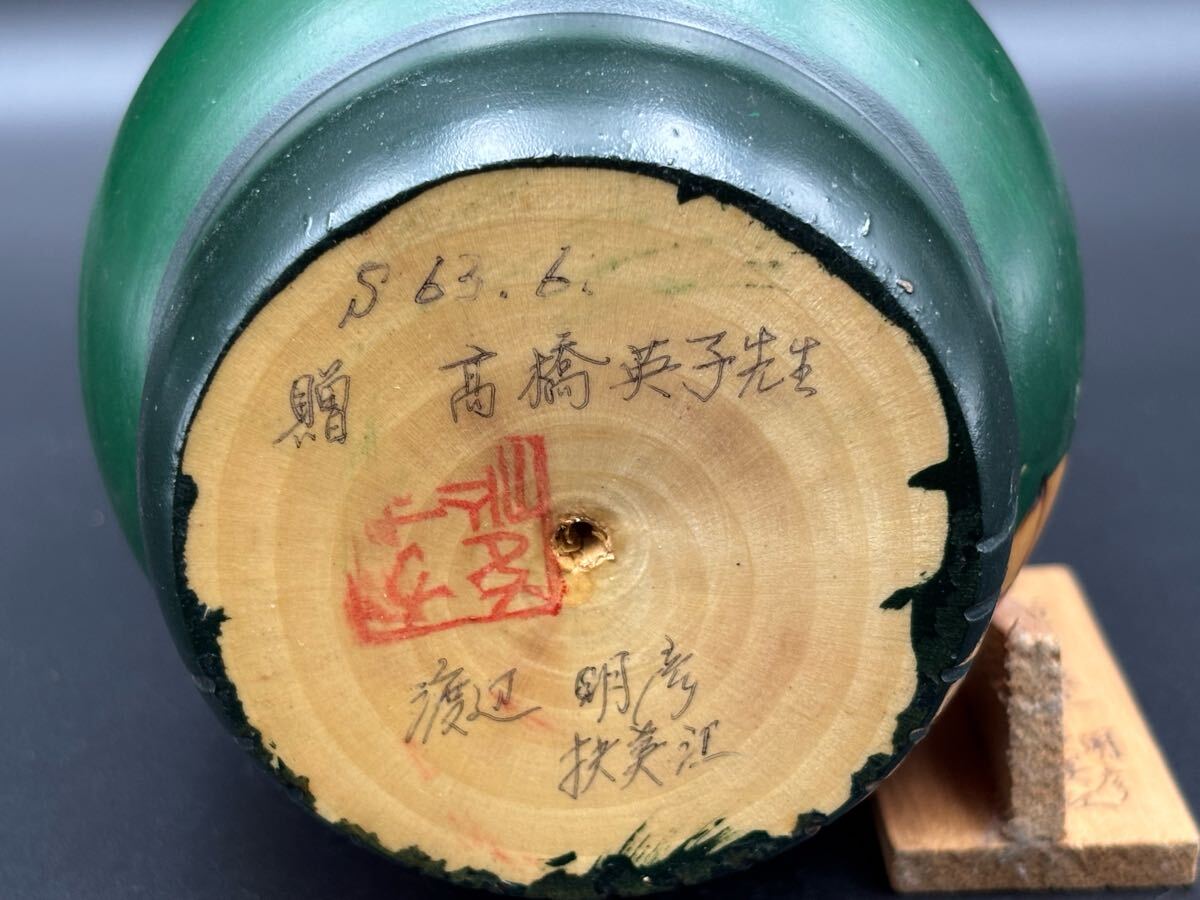 S 63.6.
贈 高橋英子先生
渡辺 明彦
扶英江